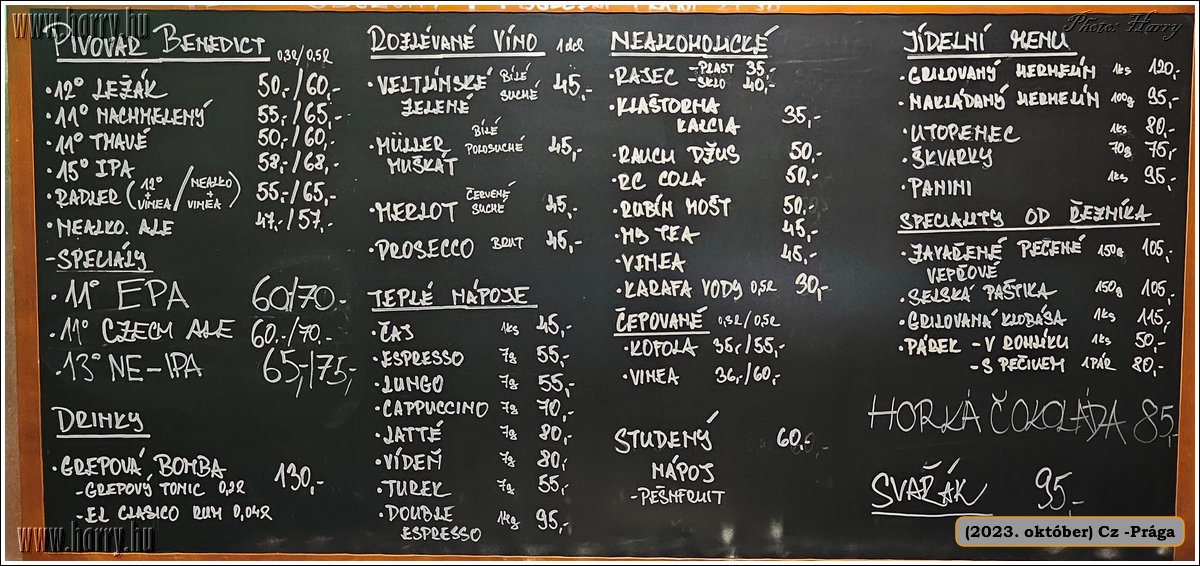 www.horry.hu
Photo: Harry
PIVOVAR BENEDICT 0,3l/0,5l
·12° LEŽÁK 50,-/60,-
·11° NACHMELENÝ 55,-/65,-
·11° TMAVÉ 50,-/60,-
·15° IPA 58,-/68,-
·RADLER (12° + VINEA / NEALKO + VINEA) 55,-/65,-
·NEALKO. ALE 47,-/57,-
-SPECIÁLY
·11° EPA 60/70.-
·11° CZECH ALE 60.-/70.-
·13° NE-IPA 65,-/75,-
DRINKY
·GREPOVÁ BOMBA 130,-
-GREPOVÝ TONIC 0,2l
-EL CLASICO RUM 0,04l
ROZLÉVANÉ VÍNO 1dcl
·VELTLÍNSKÉ ZELENÉ BÍLÉ SUCHÉ 45,-
·MÜLLER MUŠKÁT BÍLÉ POLOSUCHÉ 45,-
·MERLOT ČERVENÉ SUCHÉ 45,-
·PROSECCO BRUT 45,-
TEPLÉ NÁPOJE
·ČAJ 1ks 45,-
·ESPRESSO 7g 55,-
·LUNGO 7g 55,-
·CAPPUCCINO 7g 70,-
·LATTÉ 7g 80,-
·VÍDEŇ 7g 80,-
·TUREK 7g 55,-
·DOUBLE ESPRESSO 95,-
NEALKOHOLICKÉ
·RAJEC -PLAST 35,-
-SKLO 40,-
·KLÁŠTORNA KALCIA 35,-
·RAUCH DŽUS 50,-
·RC COLA 50,-
·RUBÍN MOŠT 50,-
·MY TEA 45,-
·VINEA 45,-
·KARAFA VODY 0,5l 30,-
ČEPOVANÉ 0,3l/0,5l
·KOFOLA 35,-/55,-
·VINEA 36,-/60,-
STUDENÝ 60,-
NÁPOJ
-PEŠNFRUIT
JÍDELNÍ MENU
·GRILOVANÝ HERMELÍN 1ks 120,-
·NAKLÁDANÝ HERMELÍN 100g 95,-
·UTOPENEC 1ks 80,-
·ŠKVARKY 70g 75,-
·PANINI 1ks 95,-
SPECIALITY OD ŘEZNÍKA
·ZAVAŘENÉ PEČENÉ VEPŘOVÉ 150g 105,-
·SELSKÁ PAŠTIKA 150g 105,-
·GRILOVANÁ KLOBÁSA 1ks 115,-
·PÁREK -V ROHLÍKU 1ks 50,-
-S PEČIVEM 1PÁR 80,-
HORKÁ ČOKOLÁDA 85,-
SVAŘÁK 95,-
www.horry.hu
(2023. október) Cz -Prága